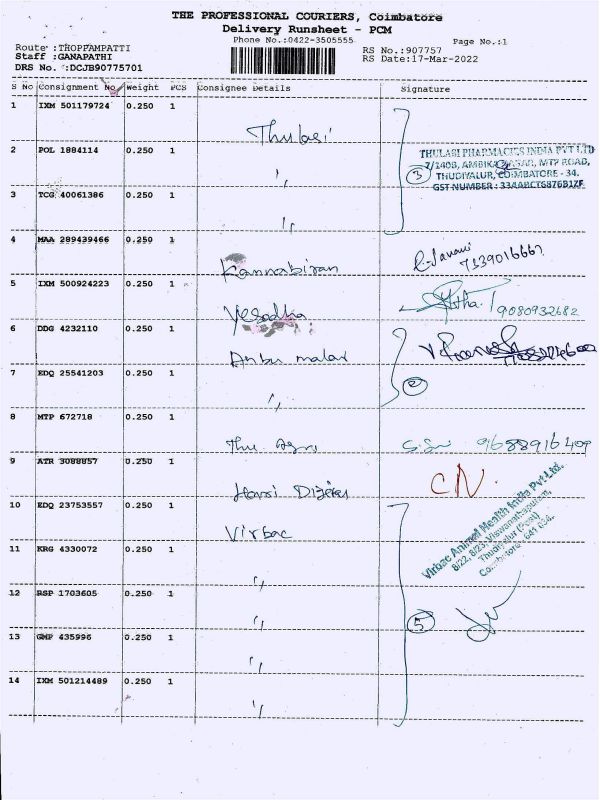 THE PROFESSIONAL COURIERS, Coimbatore
Delivery Runsheet - PCM
Phone No.:0422-3505555
Page No.:1
Route :THOPPAMPATTI
RS No.:907757
Staff :GANAPATHI
RS Date:17-Mar-2022
DRS No. :DCJB90775701
S No Consignment No Weight PCS Consignee Details Signature
1 IXM 501179724 0.250 1 Thulasi
2 POL 1884114 0.250 1 "
THULASI PHARMACIES INDIA PVT LTD
7/140B, AMBIKA NAGAR, MTP ROAD,
3 THUDIYALUR, COIMBATORE - 34.
GST NUMBER : 33AABCT6876B1ZF
3 TCG 40061386 0.250 1 "
4 MAA 289439466 0.250 1 Kannabiran 7339016667
5 IXM 500924223 0.250 1 Yesodha 9080932682
6 DDG 4232110 0.250 1 Anbu malar
7 EDQ 25541203 0.250 1 "
8 MTP 672718 0.250 1 Thu Agri 9688916409
9 ATR 3088857 0.250 1 C.N.
10 EDQ 23753557 0.250 1 Virbac
Virbac Animal Health India Pvt Ltd.
8/22, 8/23, Viswanathapuram,
Thudiyalur (Post)
Coimbatore - 641 034.
11 KRG 4330072 0.250 1 "
12 RSP 1703605 0.250 1 "
5
13 GMP 435996 0.250 1 "
14 IXM 501214489 0.250 1 "